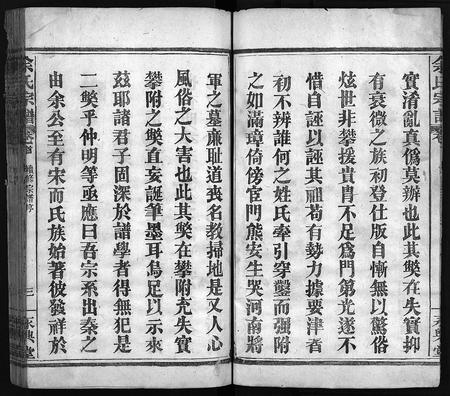 實淆亂真僞莫辦也此其獘在失實抑
有衰微之族初登仕版自慚無以驚俗
炫世非攀援貴冑不足爲門第光遂不
惜自誣以誣其祖苟有勢力據要津者
初不辨誰何之姓氏牽引穿鑿而强附
之如潘璋倚傍宦門熊安生哭河南將
軍之墓廉耻道喪名教掃地是又人心
風俗之大害也此其獘在攀附充失實
攀附之獘直妄誕筆墨耳烏足以示來
茲耶諸君子固深於譜學者得無犯是
二獘乎仲明等亟應曰吾宗系出秦之
由余公至有宋而氏族始著彼發祥於
余氏宗譜
卷首
三
永興堂
余氏宗譜
永興堂